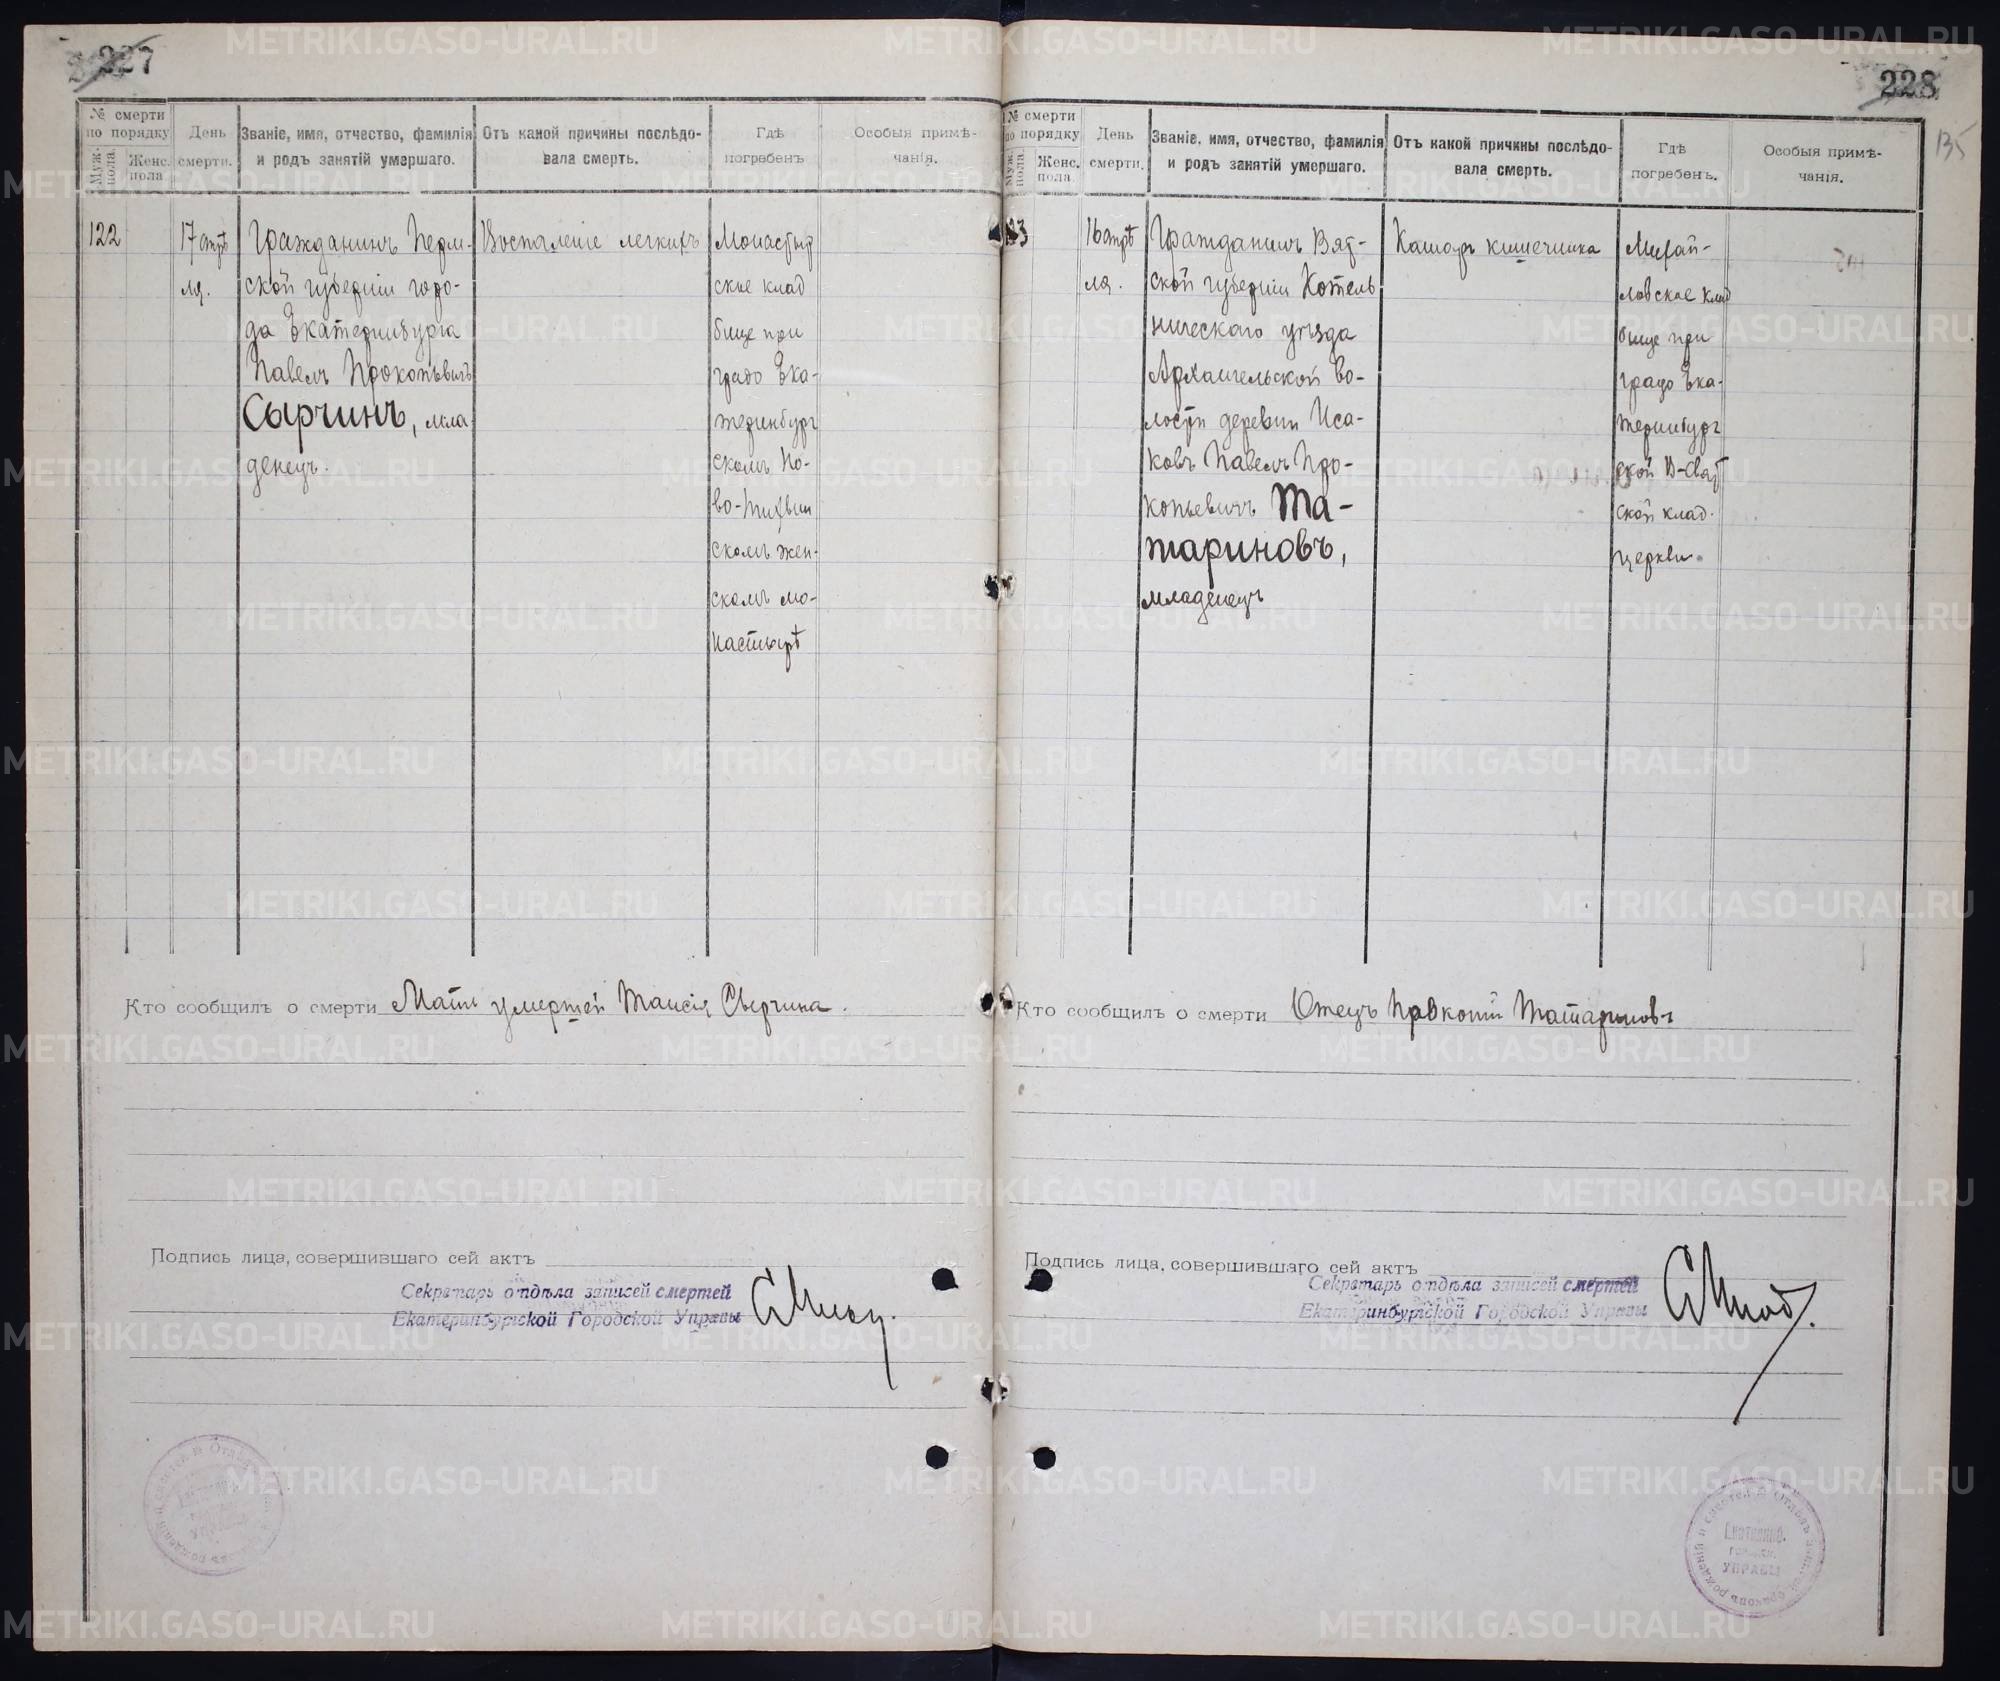 227
№ смерти
по порядку
Муж. пола.
Женс. пола
День
смерти.
Званіе, имя, отчество, фамилія
и родъ занятій умершаго.
Отъ какой причины послѣдо-
вала смерть.
Гдѣ
погребенъ
Особыя примѣ-
чанія.
122
17 апрѣ
ля.
Гражданинъ Перм-
ской губерніи горо-
да Екатеринбурга
Павелъ Прокопьевичъ
Сырчинъ, мла
денецъ.
Воспаленіе легкихъ
Монастыр
ское клад
бище при
градо Ека-
теринбург
скомъ Но-
во-Тихвин
скомъ жен-
скомъ мо-
настырѣ
Кто сообщилъ о смерти Мать умершей Таисія Сырчина.
Подпись лица, совершившаго сей актъ
Секретарь отдѣла записей смертей
Екатеринбургской Городской Управы
228
135
№ смерти
по порядку
Муж. пола.
Женс. пола.
День
смерти.
Званіе, имя, отчество, фамилія
и родъ занятій умершаго.
Отъ какой причины послѣдо-
вала смерть.
Гдѣ
погребенъ.
Особыя примѣ-
чанія.
23
16 апрѣ
ля.
Гражданинъ Вят-
ской губерніи Котель
ническаго уѣзда
Архангельской во-
лости деревни Иса-
ковъ Павелъ Про-
копьевичъ Та-
тариновъ,
младенецъ
Катаръ кишечника
Михай-
ловское клад
бище при
градо Ека-
теринбург
ской В-Свят
ской клад.
церкви.
Кто сообщилъ о смерти Отецъ Прокопій Татариновъ
Подпись лица, совершившаго сей актъ
Секретарь отдѣла записей смертей
Екатеринбургской Городской Управы
Екатеринб.
городск.
УПРАВЫ
METRIKI.GASO-URAL.RU